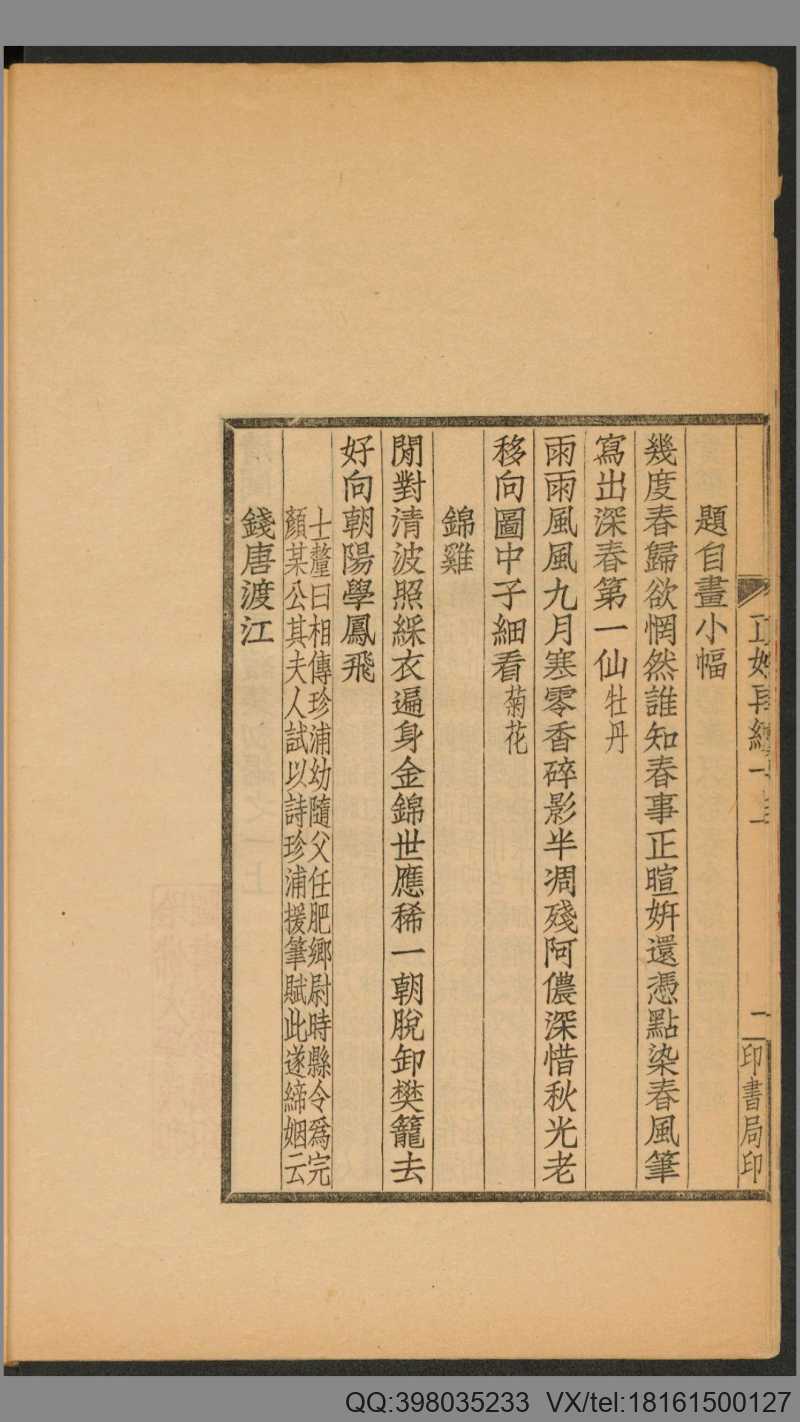 題自畫小幅
幾度春歸欲惘然誰知春事正暄姸還憑點染春風筆
寫出深春第一仙牡丹
雨雨風風九月寒零香碎影半凋殘阿儂深惜秋光老
移向圖中子細看菊花
錦雞
閒對清波照綵衣遍身金錦世應稀一朝脫卸樊籠去
好向朝陽學鳳飛
士釐曰相傳珍浦幼隨父任肥鄉尉時縣令爲完
顏某公其夫人試以詩珍浦援筆賦此遂締姻云
錢唐渡江
二
印書局印
QQ:398035233 VX/tel:18161500127